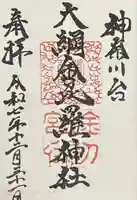 神奈川台
大綱金刀比羅神社
奉拝
令和七年十二月三十一日